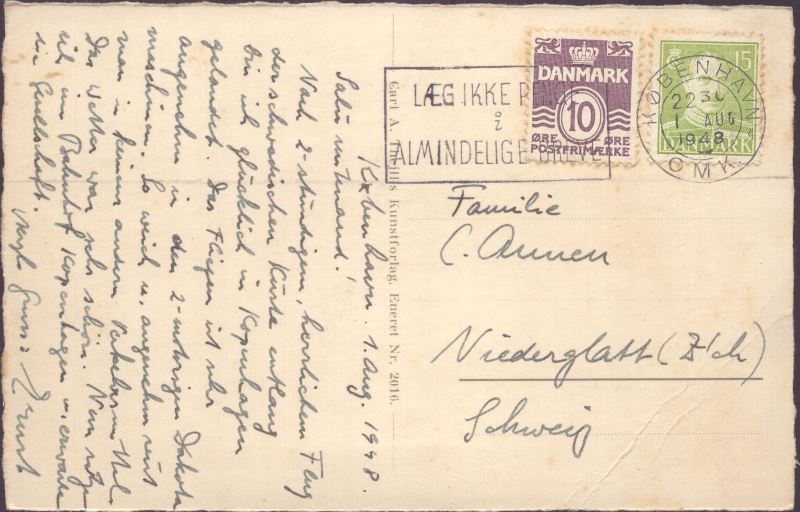 København. 1. Aug. 1948.
Salü mitenand!
Nach 2-stündigem, herrlichem Flug
der schwedischen Küste entlang
bin ich glücklich in Kopenhagen
gelandet. Das Fliegen ist sehr
angenehm in den 2-motorigen Dakota
maschinen. So weich u. angenehm reist
man in keinem andern Verkehrsmittel.
Das Wetter war sehr schön. Nun sitze
ich im Bahnhof Kopenhagen u. erwarte
die Gesellschaft.
Carl A. Kunstforlag. Eneret Nr. 2016.
LÆG IKKE
i
ALMINDELIGE
DANMARK
10
ØRE ØRE
POSTFRIMÆRKE
15
DANMARK
KØBENHAVN
22 30
1 AUG
1948
OMK.
Familie
C. Ammen
Niederglatt (Z'ch)
Schweiz